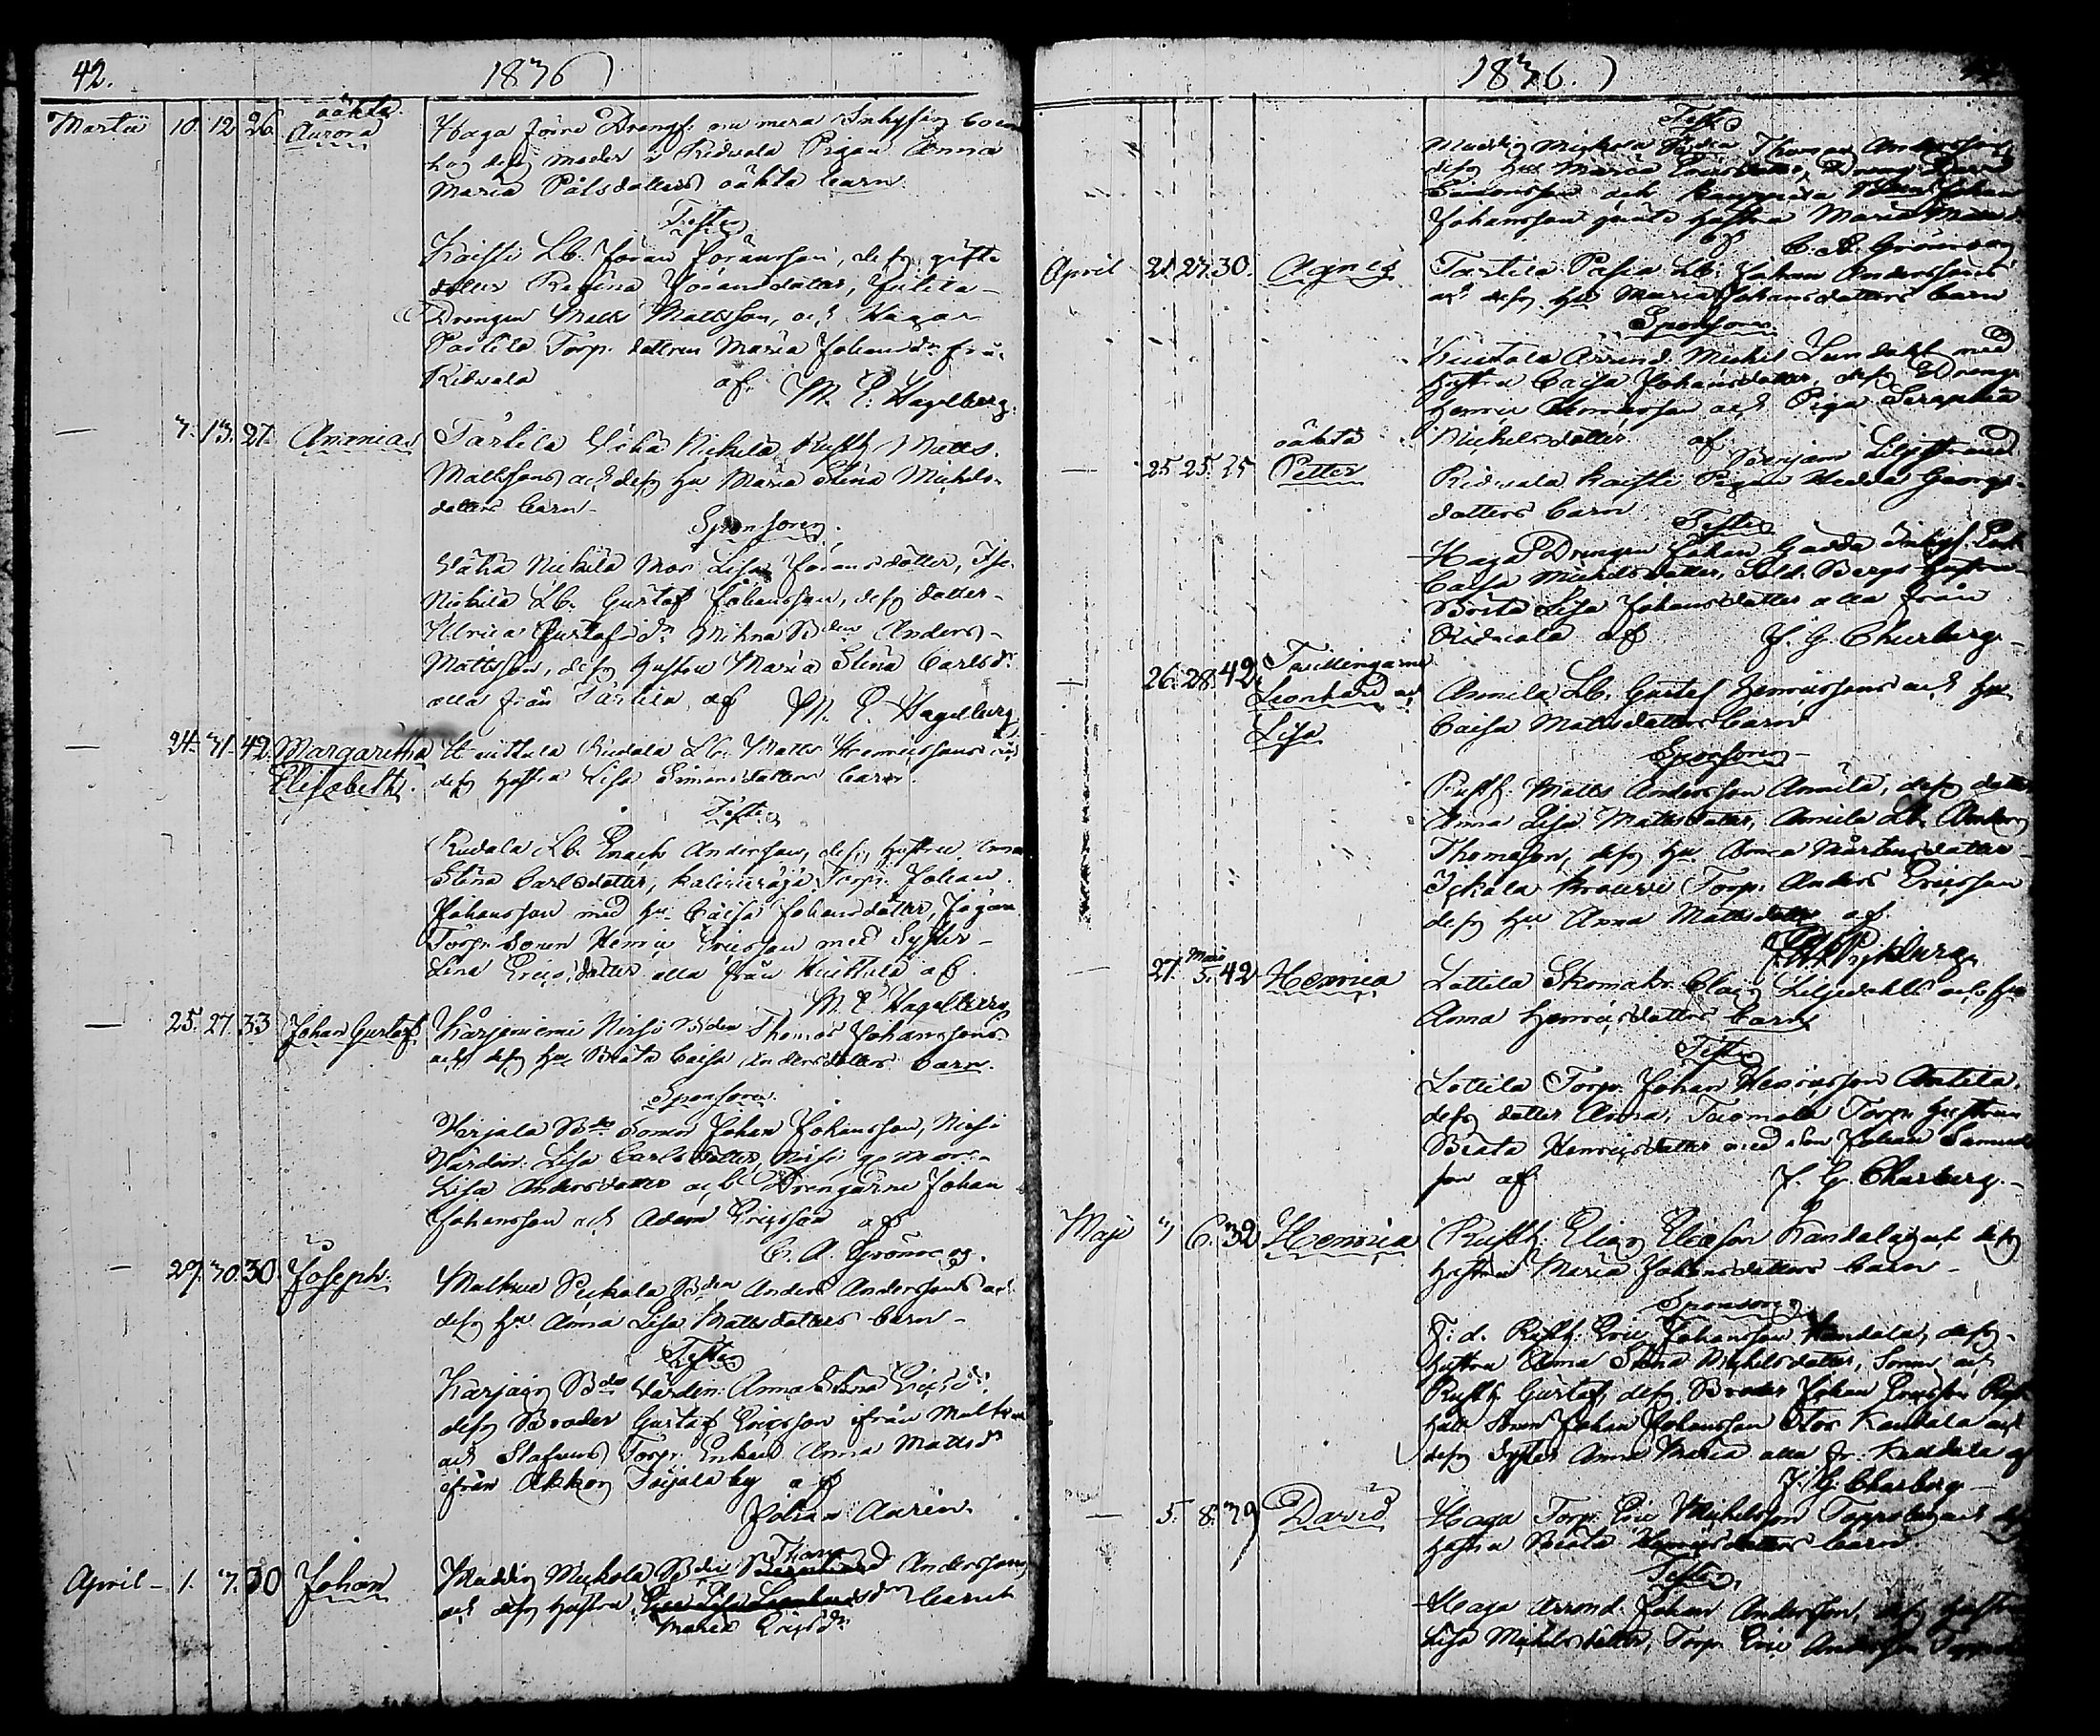 42.
1836
Martii 10. 12 26. oäkta
Aurora
Haga Jöire Drengs. nu mera Inhyses
hos dess moder i Ridvala Pigan Anna
Maria Påls dotters oäkta barn.
Testes
Kaisti Lb. Jöran Jöransson, dess gifta
dotter Regina Jörans dotter,
Drengen Matts Mattsson, och Haga
Torp. dottren Maria Johans dr från
Ridvala af M. E. Hagelberg.
— 7. 13. 27. Ananias
Tartila Vähä Nickilä Rusth. Matts
Mattssons och dess hu Maria Stina Michels
dotters barn
Sponsores.
Vähä Nickilä Mor Lisa Jörans dotter, Iso
Nickilä Lb. Gustaf Johansson, dess dotter
Ulrica Gustafs dr Bden Anders
Mattsson, dess hustru Maria Stina Carls dr
alla från Tartila af M. E. Hagelberg
— 24. 31. 42. Margaretha
Elisabeth.
Huittula Rudala Lb. Matts Henricssons och
dess hustru Lisa Simons dotters barn.
Testes
Rudala Lb. Enoch Andersson, dess hustru Anna
Stina Carls dotter, Torp. Johan
Johansson med hu Caisa Johans dotter,
Torp. Sonen Henric Ericsson med Syster
Lena Erics dotter alla från Huittula af
M. E. Hagelberg
— 25. 27. 33 Johan Gustaf.
Karjenniemi Nirsi Bden Thomas Johanssons
och dess hu Beata Caisa Anders dotters barn.
Sponsores
Bde Sonen Johan Johansson, Nirsi
Värdin. Lisa Carls dotter, Nirsi
Lisa Anders dotter och Drengarne Johan
Johansson och Adam Ericsson af
C. A. Grönvag.
— 29. 30. 30 Joseph.
Malkus Bden Anders Anderssons och
dess hu Anna Lisa Matts dotters barn
Testes
Bde Värdin. Anna Stina Erics dr,
dess Broder Gustaf Ericsson ifrån
och Torp. Enkan Anna Matts dr
ifrån by af
Johan Aurén
April — 1. 3. 30 Johan
Thomas
Bden Anderssons
och dess hustru barn
Maria Erics dr
1836.
Testes
Thomas Andersson,
dess hu Maria Erics dotter, Dreng
Simonsson och
Johansson hustru Maria
af C. A. Grönvag
April 21. 27. 30. Agnes
Tartila Pasia Lb. Johan Anderssons
och dess hu Maria Johans dotters barn
Sponsores
Arrend. Michel Lundahl med
hustru Caisa Johans dotter, dess Dreng
Henric och Piga Seraphia
Michels dotter af Benjam Liljestrand
— 25 25. 25 oäkta
Petter
Ridvala Kaisti Pigan Hedda Georgs
dotters barn
Testes
Haga Drengen Johan Gadda Inhys.
Caisa Michels dotter, Sold. Bergs hustru
Brita Lisa Johans dotter alla från
Ridvala af J. G. Churberg
— 26. 28. 42. Tvillingarne
Leonhard och
Lisa
Annila Lb. Gustaf Henricssons och hu
Caisa Matts dotters barn
Sponsores
Rusth. Matts Andersson Annila, dess dotter
Anna Lisa Matts dotter, Annila Lb. Anders
Thomasson, dess hu Anna Mårtens dotter
Torp. Anders Ericsson
dess hu Anna Matts dotter af
— 27. Maii
5. 42 Henrica
Lottila Skomak. Claes Liljedahls och hu
Anna Henrics dotters barn
Testes
Lottila Torp. Johan Henricsson Antila,
dess dotter Anna, Tuomola Torp. hustrun
Beata Henrics dotter med son Johan Samuels
son af J. G. Churberg.
Maji 3 6. 32 Henrica
Rusth. Elias Eliasson Kandala och dess
hustru Maria Johans dotters barn
Sponsores
F: d. Rusth. Eric Johansson Kandala, dess
hustru Anna Stina Michels dotter, Sonen och
Rusth. Gustaf, dess Broder Johan Ericsson Rust
håll Sonen Johan Johansson Stor Kandala och
dess Syster Anna Maria alla fr. Kandala af
J. G. Churberg
— 5. 8. 39 David
Haga Torp. Eric Michelsson och dess
hustru Beata Henrics dotters barn
Testes
Haga Arrend. Johan Andersson, dess hustru
Lisa Michels dotter, Torp. Eric Andersson